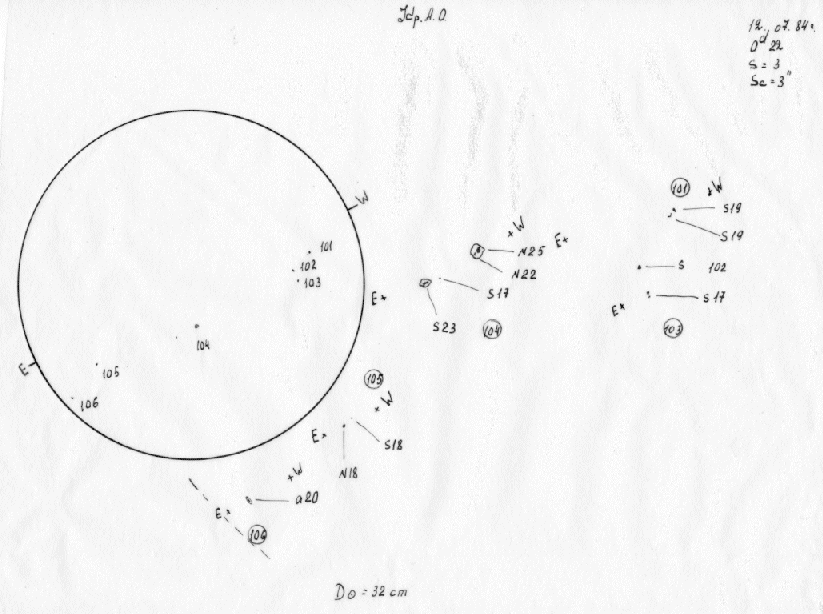 12. 07. 84г.
S = 3
Sc = 3"
W
101
102
103
104
105
106
E
101
W
S19
S19
S 102
S17
E
103
W
E
N25
N22
S17
S23
104
E
105
W
E
S18
N18
W
a20
E
106
D⊙ = 32 cm